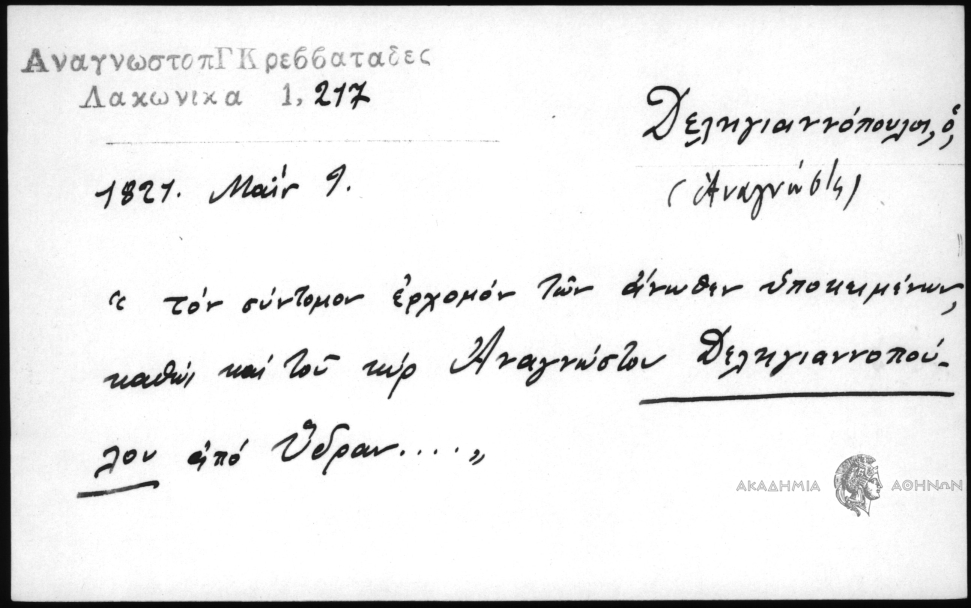 ΑναγνωστοπΓΚρεββαταδες
Λακωνικα 1, 217
Δεληγιαννόπουλος, ὁ,
(Ἀναγνώστης)
1821. Μαΐου 9.
“ τόν σύντομον ἐρχομόν τῶν ἄνωθεν ὑποκειμένων,
καθώς καί τοῦ κύρ Ἀναγνώστου Δεληγιαννοπού-
λου ἀπό Ὕδραν.....„
ΑΚΑΔΗΜΙΑ ΑΘΗΝΩΝ